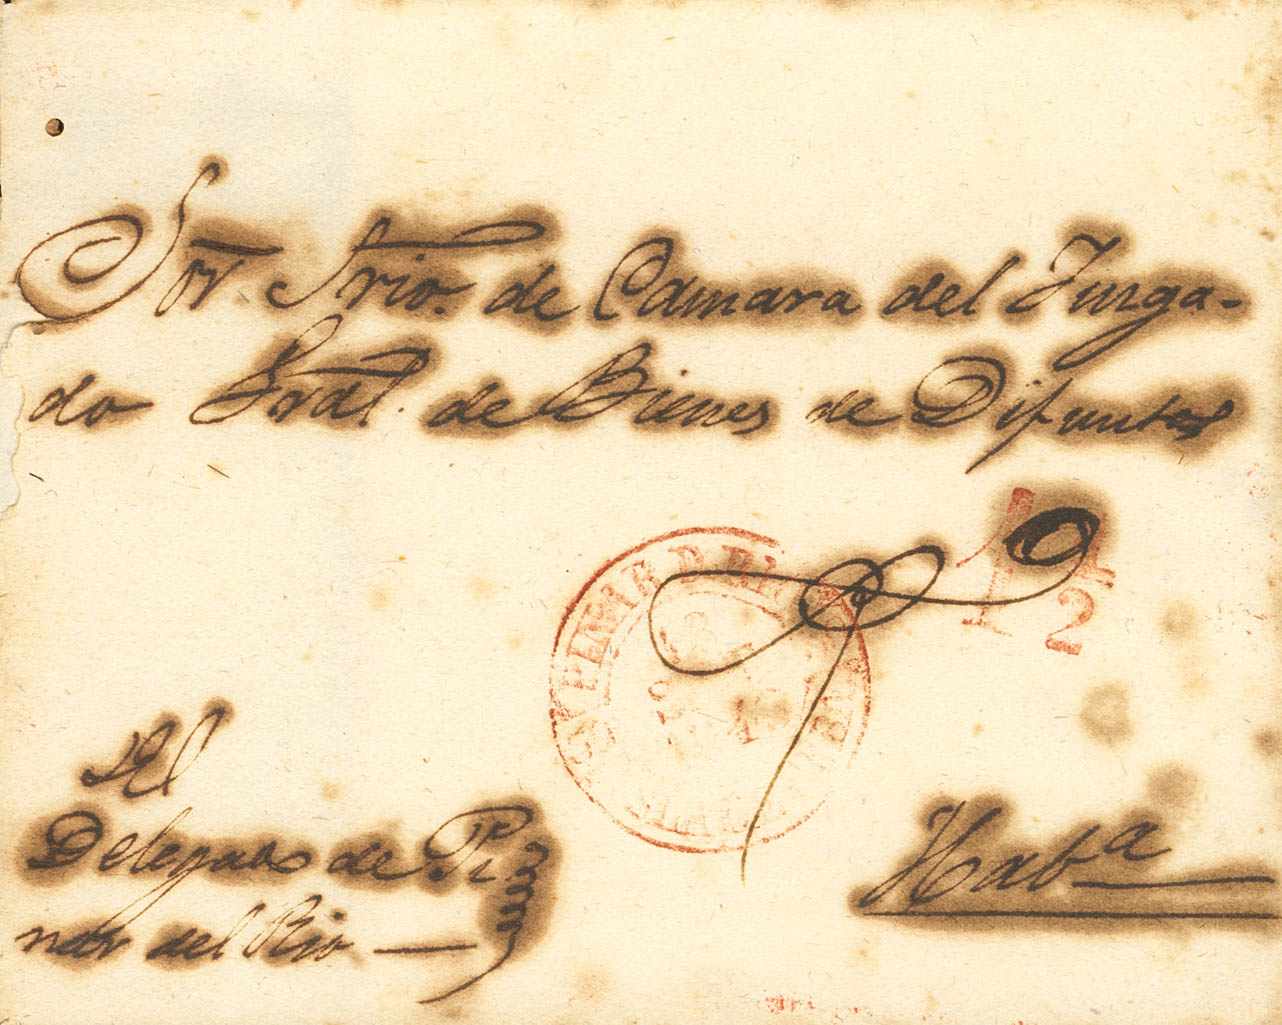 Sor. Srio. de Camara del Juzga-
do Gral. de Bienes de Difuntos
1 1/2
El
Delegado de Pi
nar del Rio
Haba